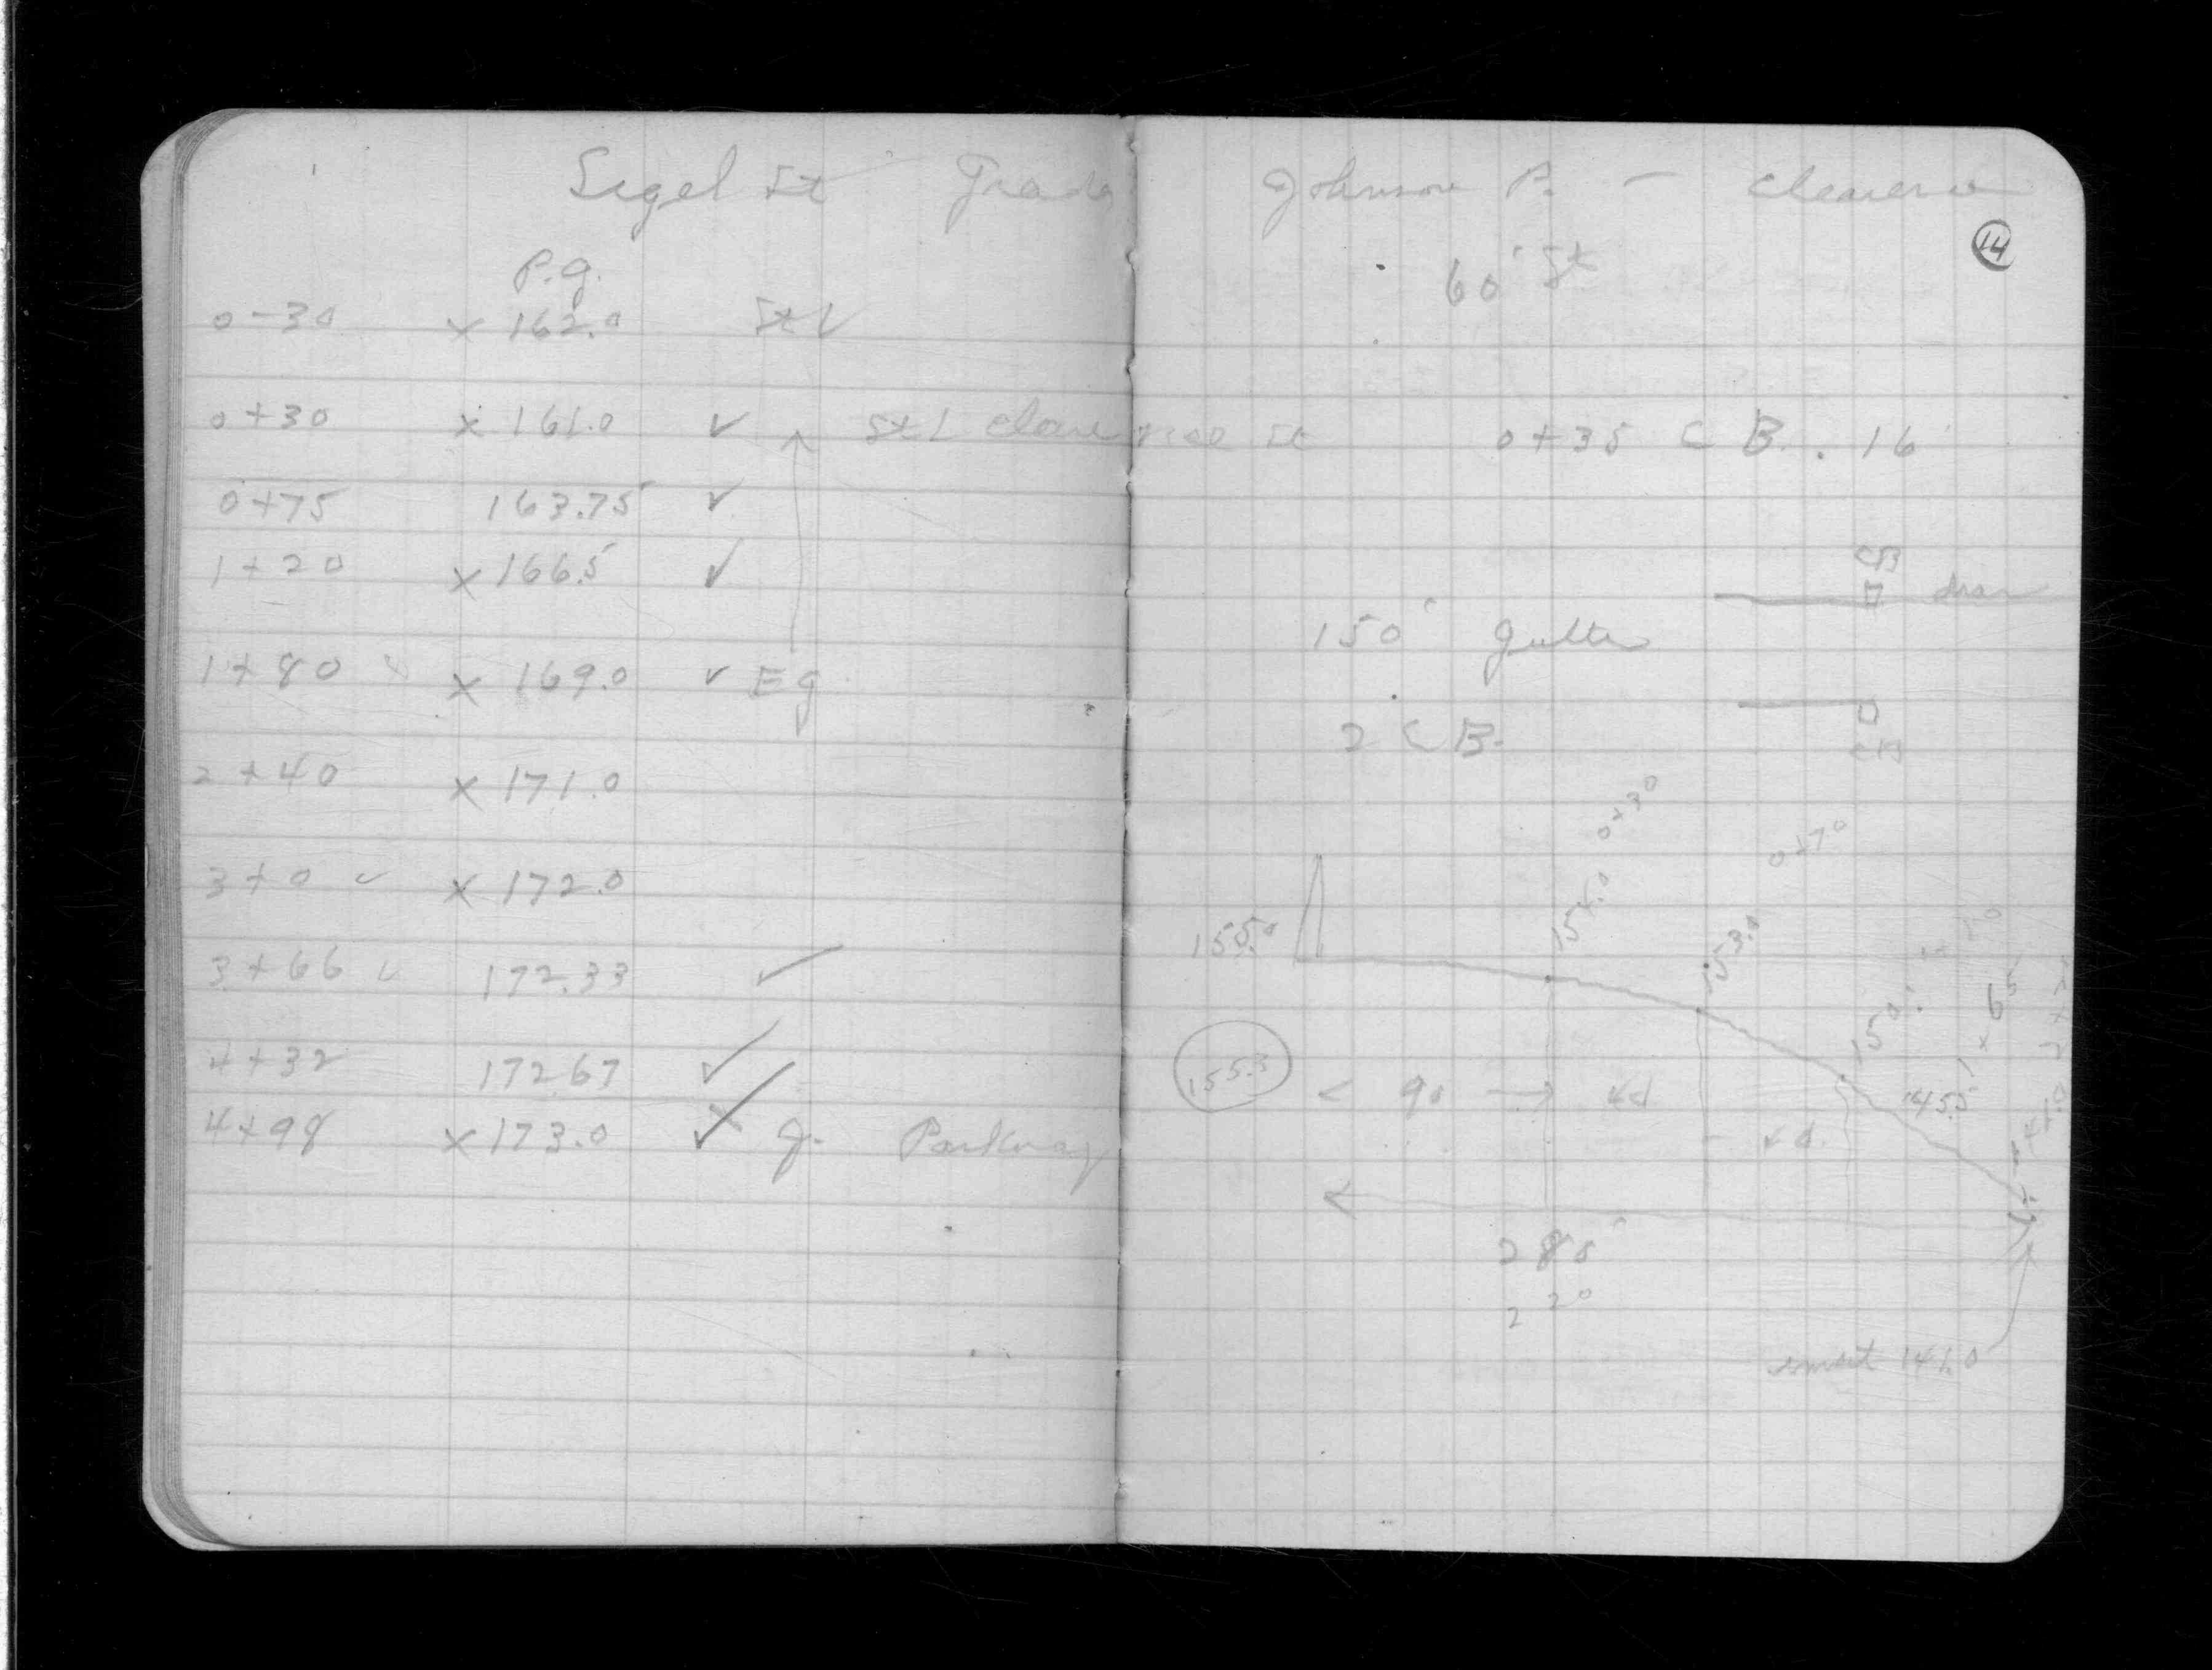 Sigel St Grade Johnson P. - Clarence
14
60' St
P.G.
0-30 x 162.0 St L
0+30 x 161.0 ✓ St L Clarence St 0+35 C B. 16'
0+75 163.75 ✓
1+20 x 166.5 ✓
CB
drain
150' gutter
1+80 x 169.0 ✓ Eg
2 C B.
CB
2+40 x 171.0
0+30
0+70
3+0 ✓ x 172.0
154.0
155.0
153.0
3+66 ✓ 172.33 ✓
150.
1+65
4+32 172.67 ✓
155.3
< 90 → 40
145.5
4+98 x 173.0 ✓ g. Parkway
40
280'
220
invert